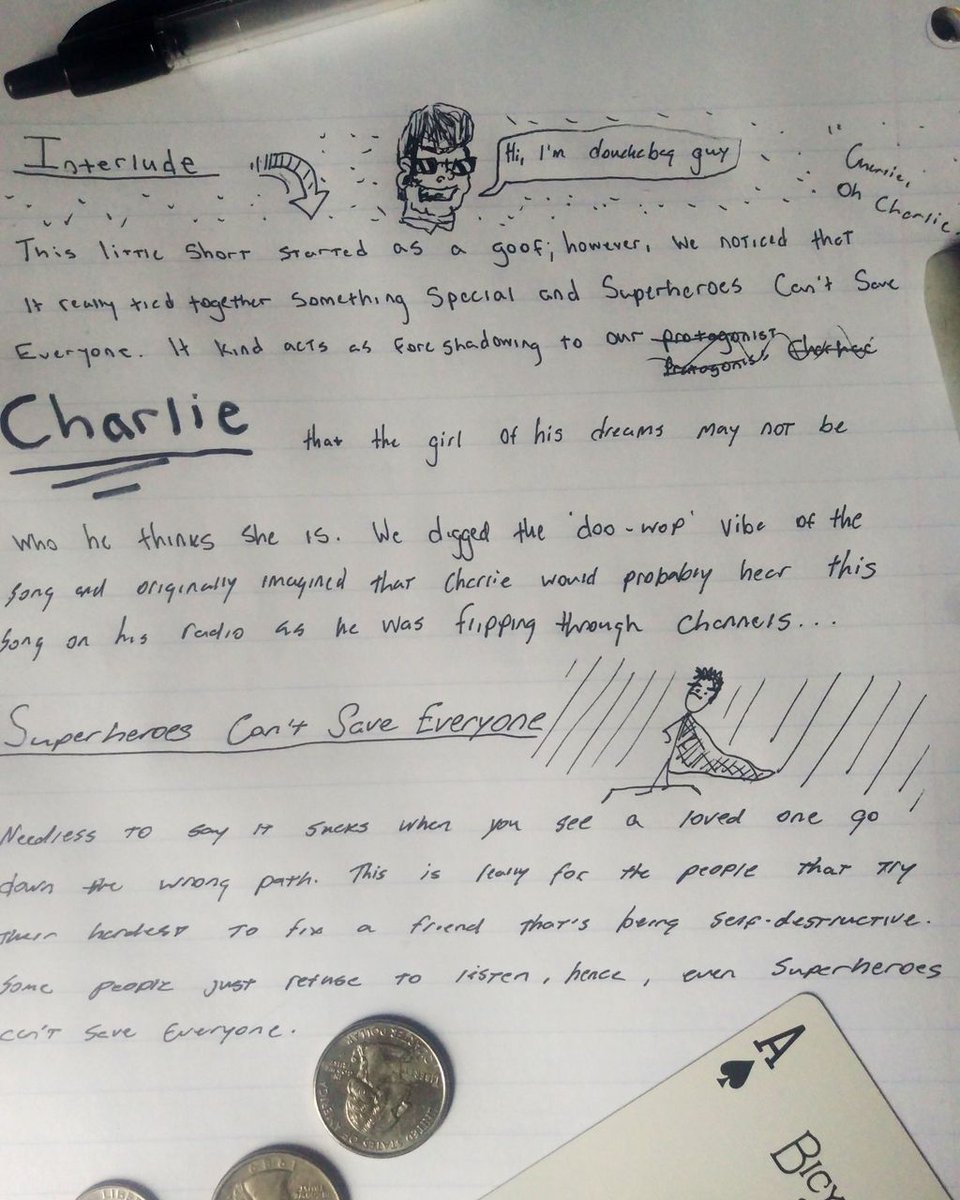 Interlude
Hi, I'm douchebag guy
Charlie,
Oh Charlie
This little short started as a goof; however, we noticed that
it really tied together something special and Superheroes Can't Save
Everyone. It kind acts as foreshadowing to our protagonist
Protagonist Charlie
Charlie that the girl of his dreams may not be
who he thinks she is. We digged the 'doo-wop' vibe of the
song and originally imagined that Charlie would probably hear this
song on his radio as he was flipping through channels...
Superheroes Can't Save Everyone
Needless to say it sucks when you see a loved one go
down the wrong path. This is really for the people that try
their hardest to fix a friend that's being self-destructive.
Some people just refuse to listen, hence, even Superheroes
can't save Everyone.
UNITED STATES OF AMERICA
LIBERTY
A
BICY